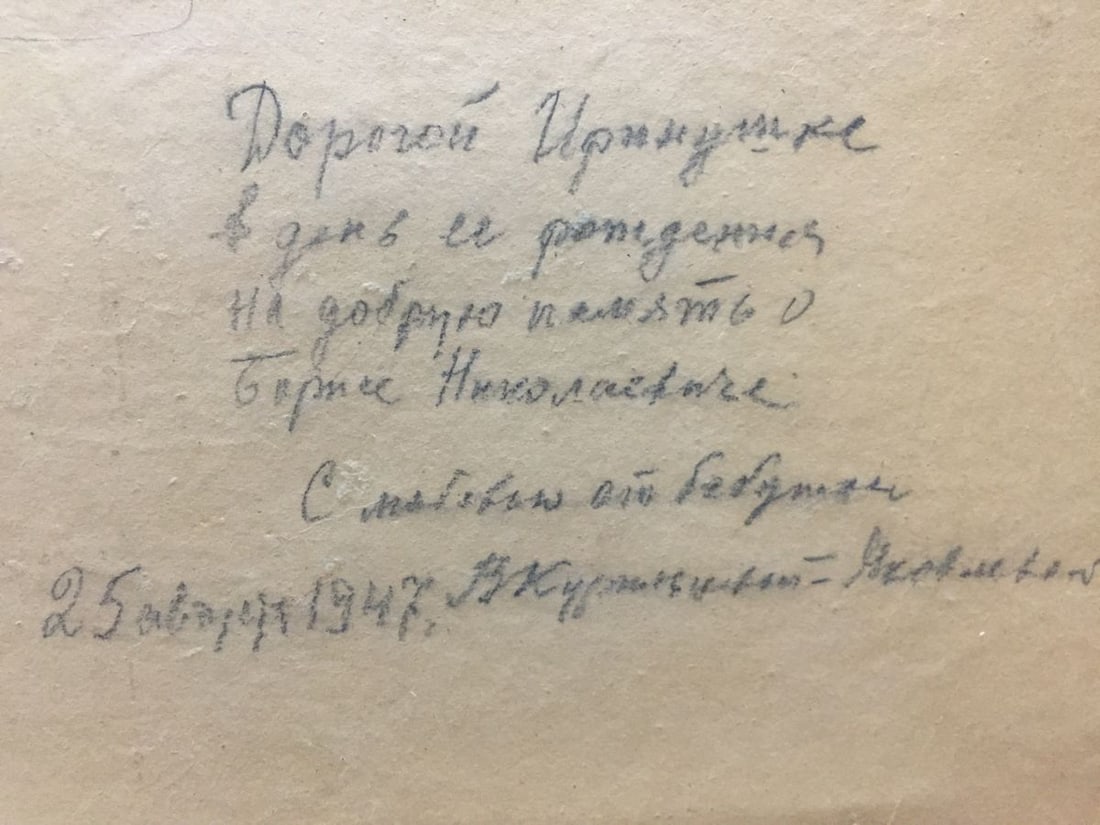 Дорогой Иринушке
в день ее рождения
на добрую память о
Борисе Николаевиче
С любовью от бабушки
25 января 1947.